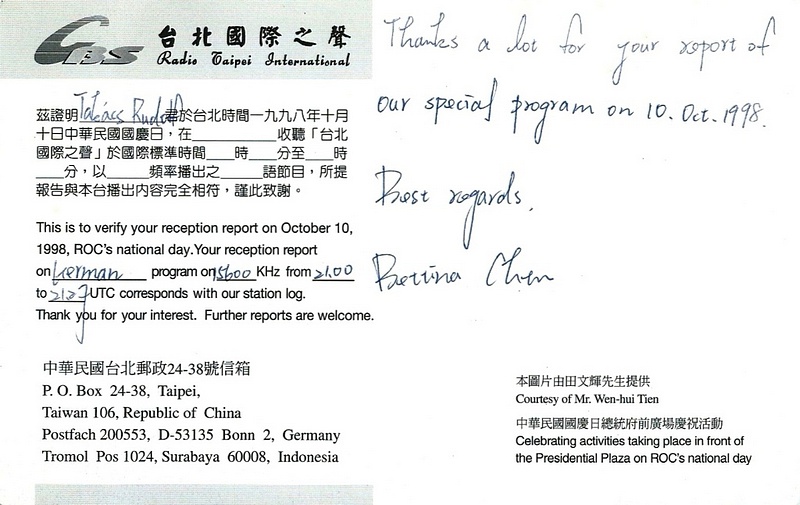 CBS
台北國際之聲
Radio Taipei International
茲證明Takács Rudolf君於台北時間一九九八年十月
十日中華民國國慶日，在__________收聽「台北
國際之聲」於國際標準時間___時___分至___時
___分，以_____頻率播出之_____語節目，所提
報告與本台播出內容完全相符，謹此致謝。
This is to verify your reception report on October 10,
1998, ROC's national day.Your reception report
on German program on 15600 KHz from 21.00
to 2127 UTC corresponds with our station log.
Thank you for your interest. Further reports are welcome.
中華民國台北郵政24-38號信箱
P. O. Box 24-38, Taipei,
Taiwan 106, Republic of China
Postfach 200553, D-53135 Bonn 2, Germany
Tromol Pos 1024, Surabaya 60008, Indonesia
Thanks a lot for your report of
our special program on 10. Oct. 1998.
Best regards,
Bettina Chen
本圖片由田文輝先生提供
Courtesy of Mr. Wen-hui Tien
中華民國國慶日總統府前廣場慶祝活動
Celebrating activities taking place in front of
the Presidential Plaza on ROC's national day